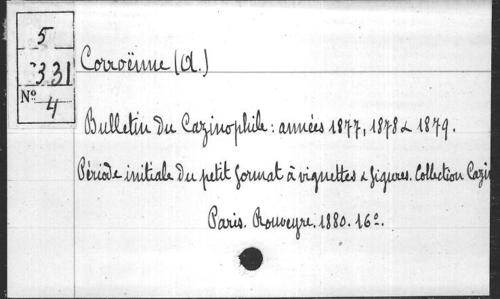 5
331
Nº 4
Corroënne (A.)
Bulletin du Cazinophile : années 1877, 1878 & 1879.
Période initiale du petit format à vignettes & figures. Collection Cazin
Paris. Rouveyre. 1880. 16º.